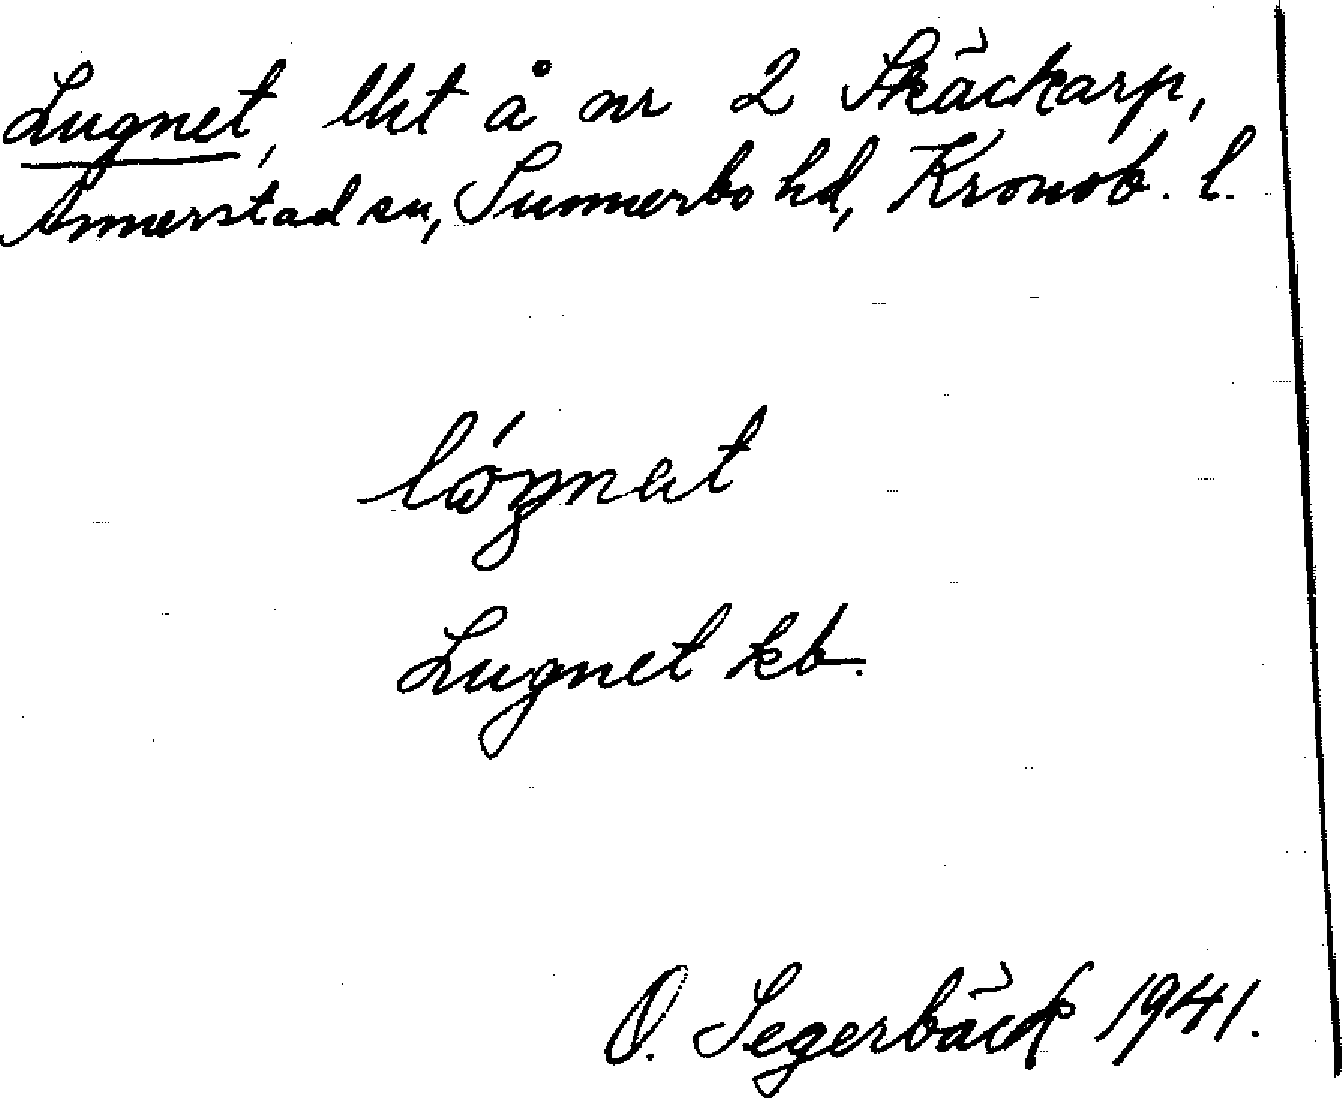 Lugnet, lht å nr 2 Skäckarp,
Annerstad sn, Sunnerbo hd, Kronob. l.
lógnet
Lugnet kb.
O. Segerbäck 1941.